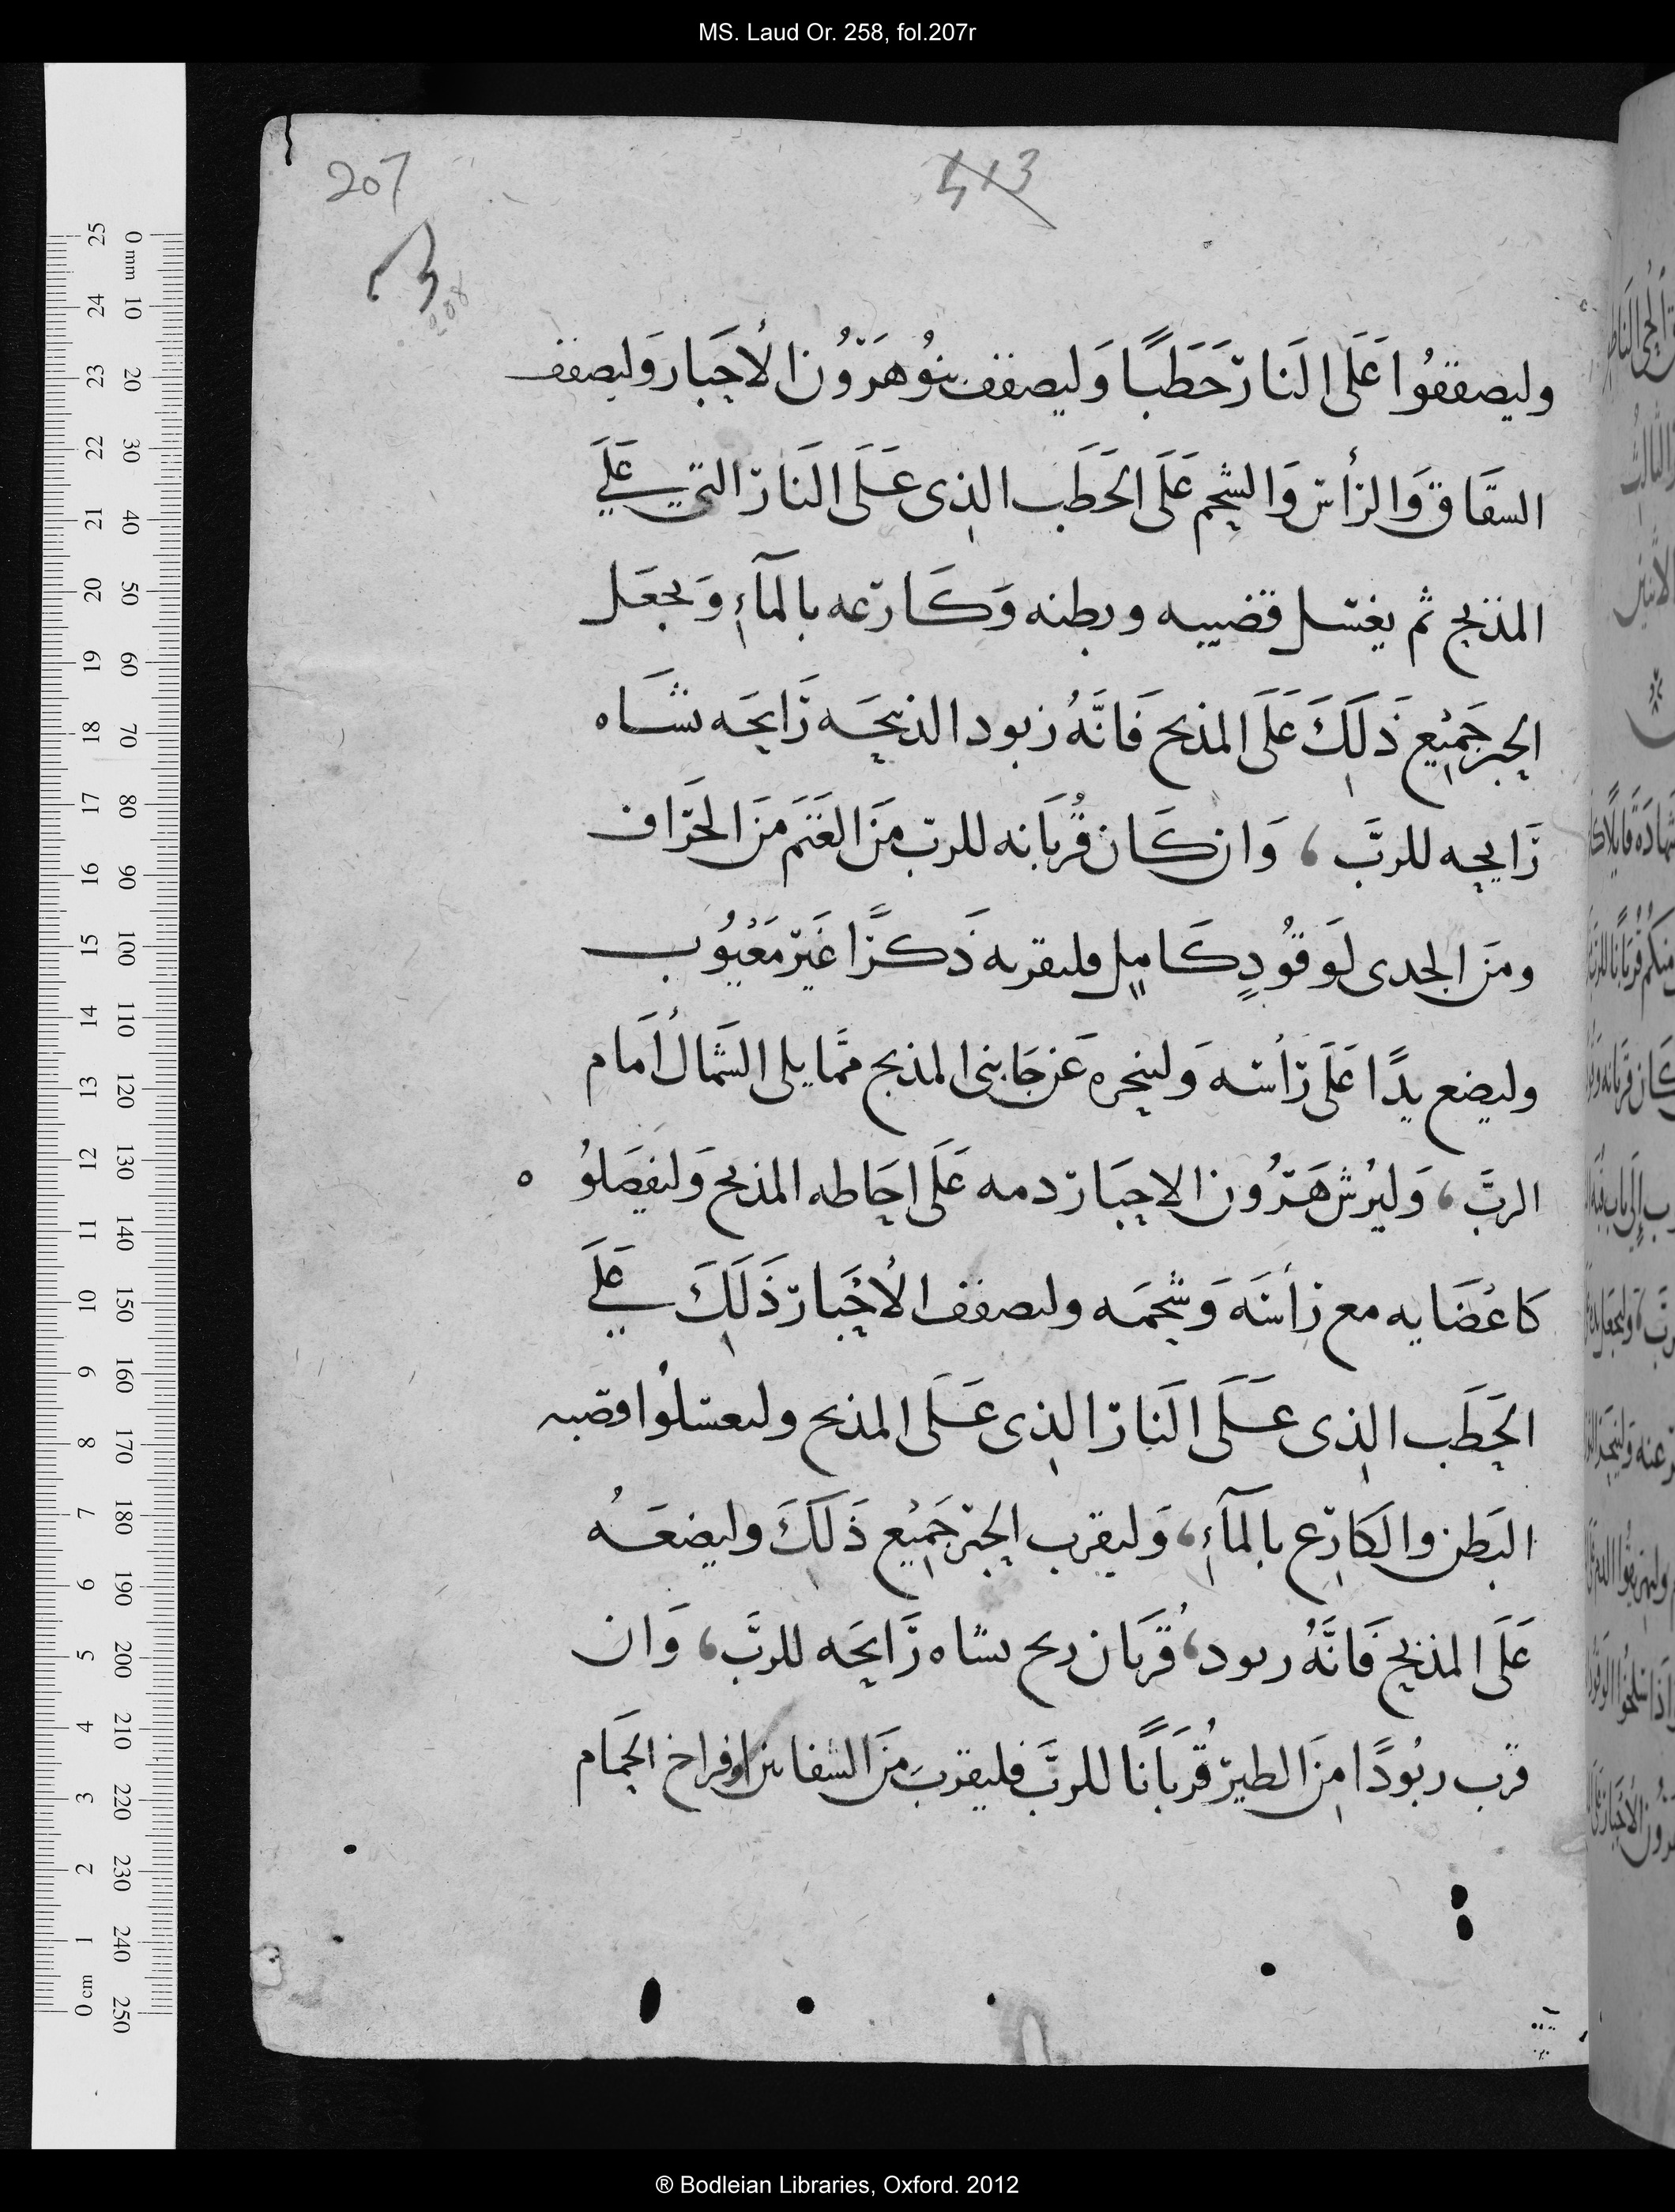 MS. Laud Or. 258, fol.207r
207
413
208
وليصففُوا عَلَى النَار حَطَبًا وَليصفف بنُو هَرَوُن الأحَبار وَليصفف
السقَاق وَالرأس وَالشحِم عَلَى الحَطَب الذِى عَلَى النَار التي عَلَى
المذبح ثم يغسل قضيبه وبطنه وَكَارعه بالمآءِ وَيجعَل
الحِبر جَمِيْع ذَلِكَ عَلَى المذبح فَانَّهُ زبود الذبيحَه رَايحَه نشَاه
رَايحِه للربَّ، وَان كَان قُربَانه للرب مَن الغَنَم مَن الخَراف
ومَن الجدى لوَقُودٍ كَامِلٍ فليقربه ذَكَرًا غَيَر مَعْيُوب
وليضع يدًا عَلَى رَأسه وَلينحره عَن جَانبى المذبح ممَّا يلى الشمَالُ امَام
الربَّ، وَليُرش هَرُون الاحبَار دمه عَلَى احَاطه المذبح وَليفصَلوُ ٥
كاعُضَايه مع رأسَه وَشحمَه وليصفف الأحْبَار ذَلِكَ عَلَى
الحِطَب الذِى عَلَى النَار الذِى عَلَى المذبح وليغسلُوا قصبه
البَطن والكَارِع بالمآءِ، وَليقرب الحِبر جَمِيْع ذَلِكَ وليضعَهُ
عَلَى المذبح فَانَّهُ ربود، قُربَان ريح نشاه رَايحَه للربَّ، وَان
قرب ربُودًا مِنَ الطير قُربَانًا للربَّ فليقربَ مَن الشفانين او فراخ الحمَام
® Bodleian Libraries, Oxford. 2012